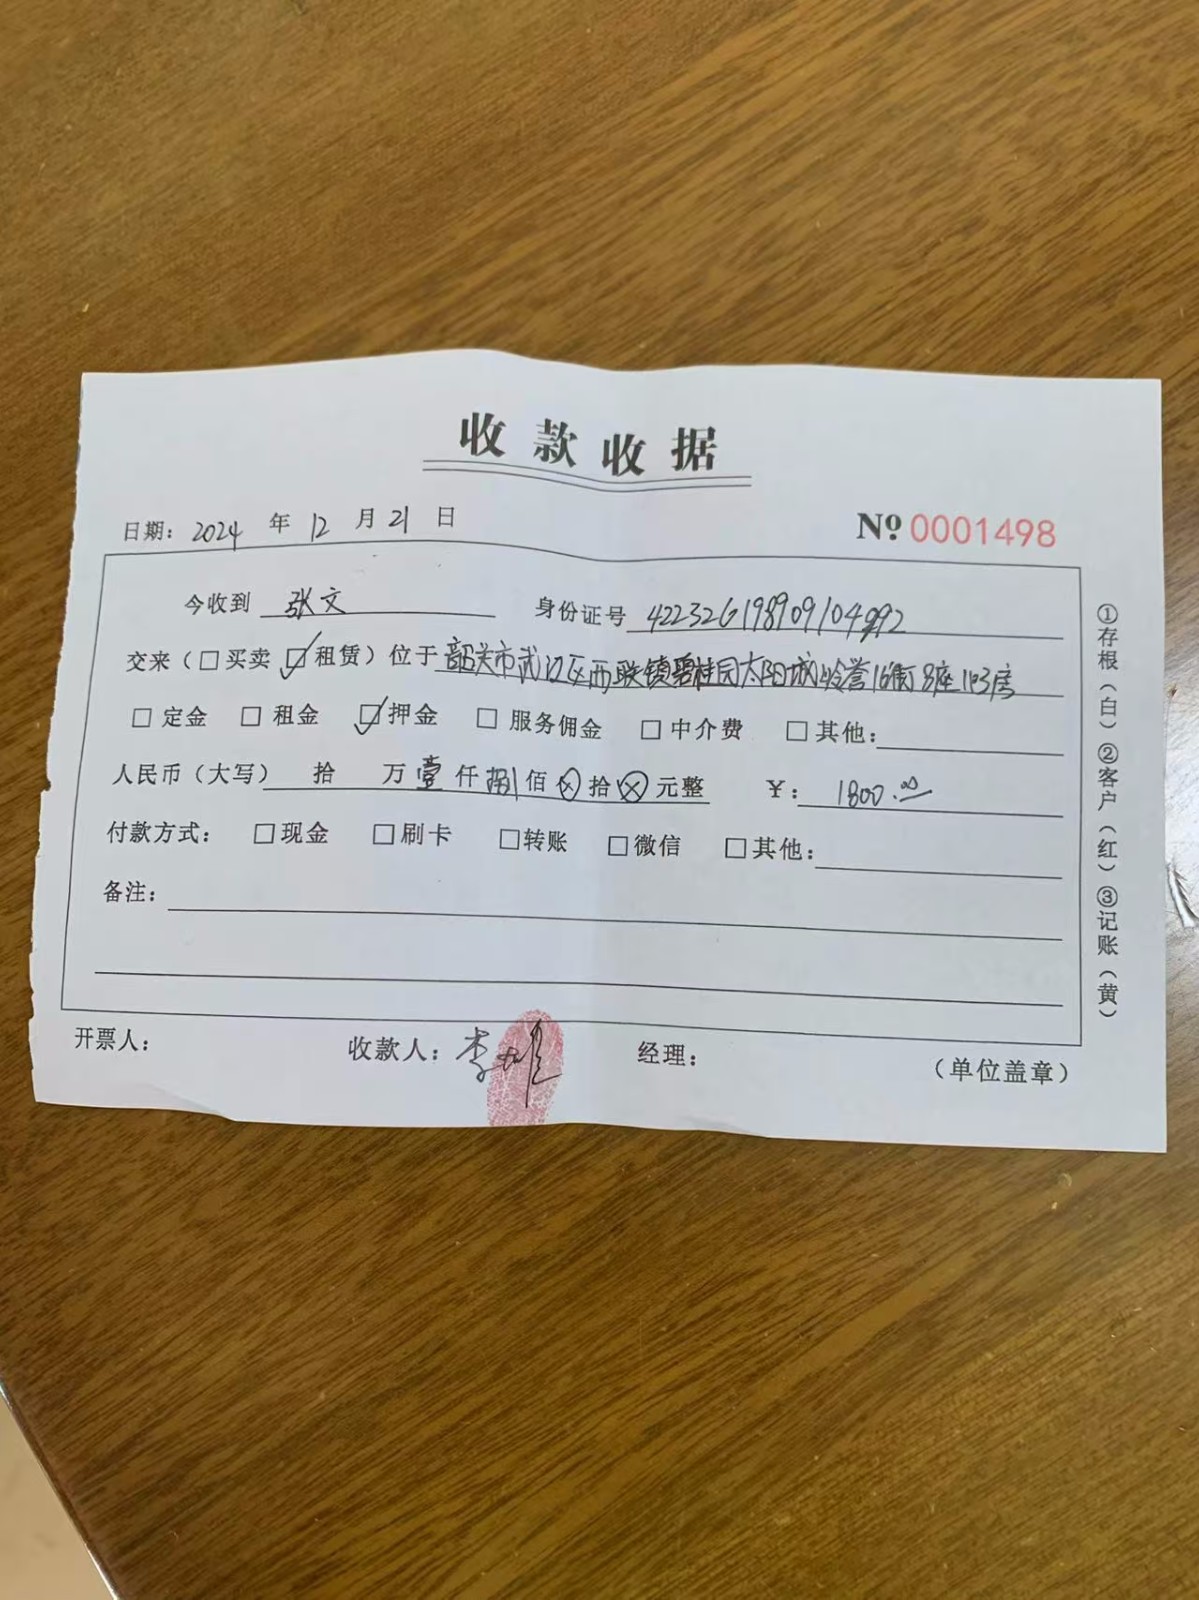 收款收据
日期：2024年12月21日 №0001498
今收到 张文 身份证号 422326198909104992
交来（□买卖 ☑租赁）位于 韶关市武江区西联镇碧桂园太阳城 16街8座1103房
□定金 □租金 ☑押金 □服务佣金 □中介费 □其他：
人民币（大写） 拾 万壹仟捌佰ⓧ拾ⓧ元整 ￥：1800.00
付款方式： □现金 □刷卡 □转账 □微信 □其他：
备注：
开票人： 收款人：李雄 经理： （单位盖章）
①存根（白）②客户（红）③记账（黄）